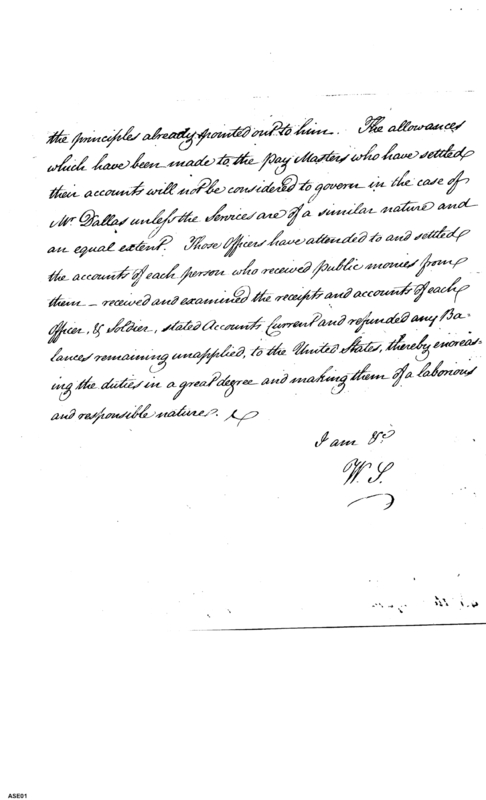 the principles already pointed out to him. The allowances
which have been made to the Pay Masters who have settled
their accounts will not be considered to govern in the case of
Mr. Dallas unless the Services are of a similar nature and
an equal extent. Those Officers have attended to and settled
the accounts of each person who received public monies from
them – received and examined the receipts and accounts of each
Officer, & Soldier, stated Accounts Current and refunded any Ba-
lances remaining unapplied, to the United States, thereby encreas-
ing the duties in a great degree and making them of a laborious
and responsible nature.
I am &c
W. S.
ASE01